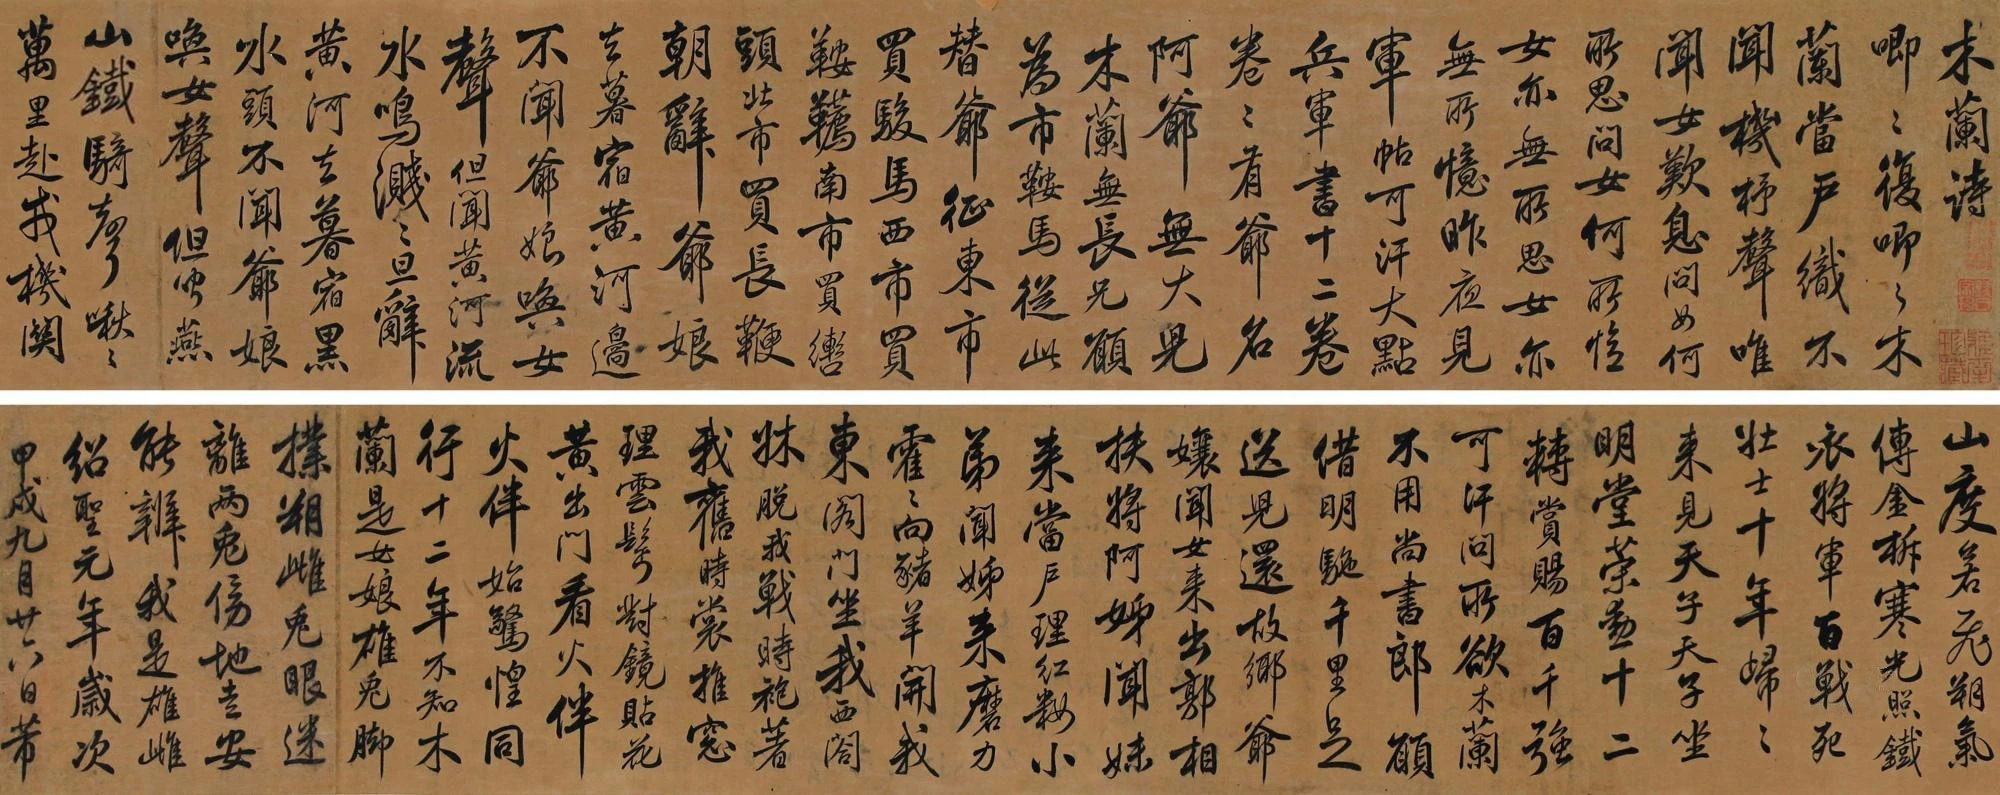 木蘭詩
唧〻復唧〻木
蘭當戶織不
聞機杼聲唯
聞女歎息問女何
所思問女何所憶
女亦無所思女亦
無所憶昨夜見
軍帖可汗大點
兵軍書十二卷
卷〻有爺名
阿爺無大兒
木蘭無長兄願
為市鞍馬從此
替爺征東市
買駿馬西市買
鞍韉南市買轡
頭北市買長鞭
朝辭爺娘
去暮宿黃河邊
不聞爺娘喚女
聲但聞黃河流
水鳴濺〻旦辭
黃河去暮宿黑
水頭不聞爺娘
喚女聲但聞燕
山鐵騎聲啾〻
萬里赴戎機関
山度若飛朔氣
傳金柝寒光照鐵
衣將軍百戰死
壯士十年歸〻
來見天子天子坐
明堂策勳十二
轉賞賜百千強
可汗問所欲木蘭
不用尚書郎願
借明駞千里足
送兒還故鄉爺
孃聞女來出郭相
扶將阿姊聞妹
來當戶理紅粧小
弟聞姊來磨刀
霍〻向豬羊開我
東閣門坐我西閣
牀脫我戰時袍著
我舊時裳推窓
理雲髩對鏡貼花
黃出門看火伴
火伴始驚惶同
行十二年不知木
蘭是女娘雄兎脚
撲朔雌兎眼迷
離兩兎傍地走安
能辨我是雄雌
紹聖元年歲次
甲戌九月廿六日芾